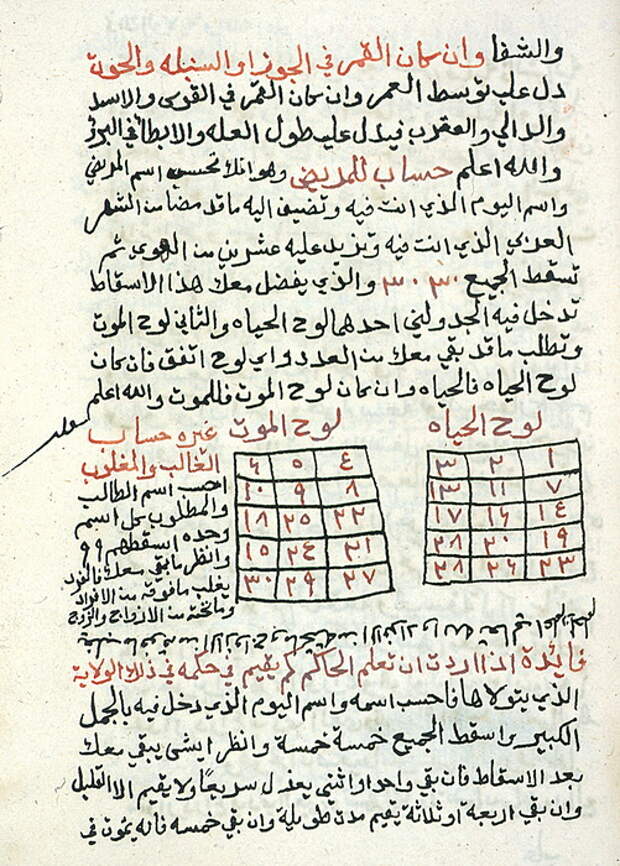 والشفا وان كان القمر في الجوزا والسنبله والحوت
دل على توسط العمر وان كان القمر في القوس والاسد
والدالي والعقرب فيدل على طول العله والابطا في البرئ
والله اعلم حساب للمريض وهو انك تحسب اسم المريض
واسم اليوم الذي انت فيه وتضيف اليه ما قد مضا من الشهر
العربي الذي انت فيه وتزيد عليه عشرين من الهوي ثم
تسقط الجميع ٣٠ ٣٠ والذي يفضل معك هذا الاسقاط
تدخل فيه الجدولين احدهما لوح الحياه والثاني لوح الموت
وتطلب ما قد بقي معك من العدد واي لوح اتفق فان كان
لوح الحياه فالحياه وان كان لوح الموت فللموت والله اعلم
لوح الحياه
١ ٢ ٣
٧ ١١ ١٣
١٤ ١٦ ١٧
١٩ ٢٠ ٢٨
٢٣ ٢٦ ٢٨
لوح الموت
٤ ٥ ٦
٨ ٩ ١٠
٢٢ ٢٥ ١٨
٢١ ٢٤ ١٥
٢٧ ٢٩ ٣٠
غيره حساب
الغالب والمغلوب
احسب اسم الطالب
والمطلوب كل اسم
وحده اسقطهم ٩ ٩
وانظر ما بقي معك فالفرد
يغلب ما فوقه من الافراد
وما تحته من الازواج والزوج
فايدة اذا اردت ان تعلم الحاكم كم يقيم في حكمه في ذلك الولاية
الذي يتولاها فاحسب اسمه واسم اليوم الذي دخل فيه بالجمل
الكبير واسقط الجميع خمسة خمسة وانظر ايشي يبقي معك
بعد الاسقاط فان بقي واحد او اثنين يعزل سريعا ولا يقيم الا القليل
وان بقي اربعة او ثلاثة يقيم مدة طويلة وان بقي خمسه فانه يموت في